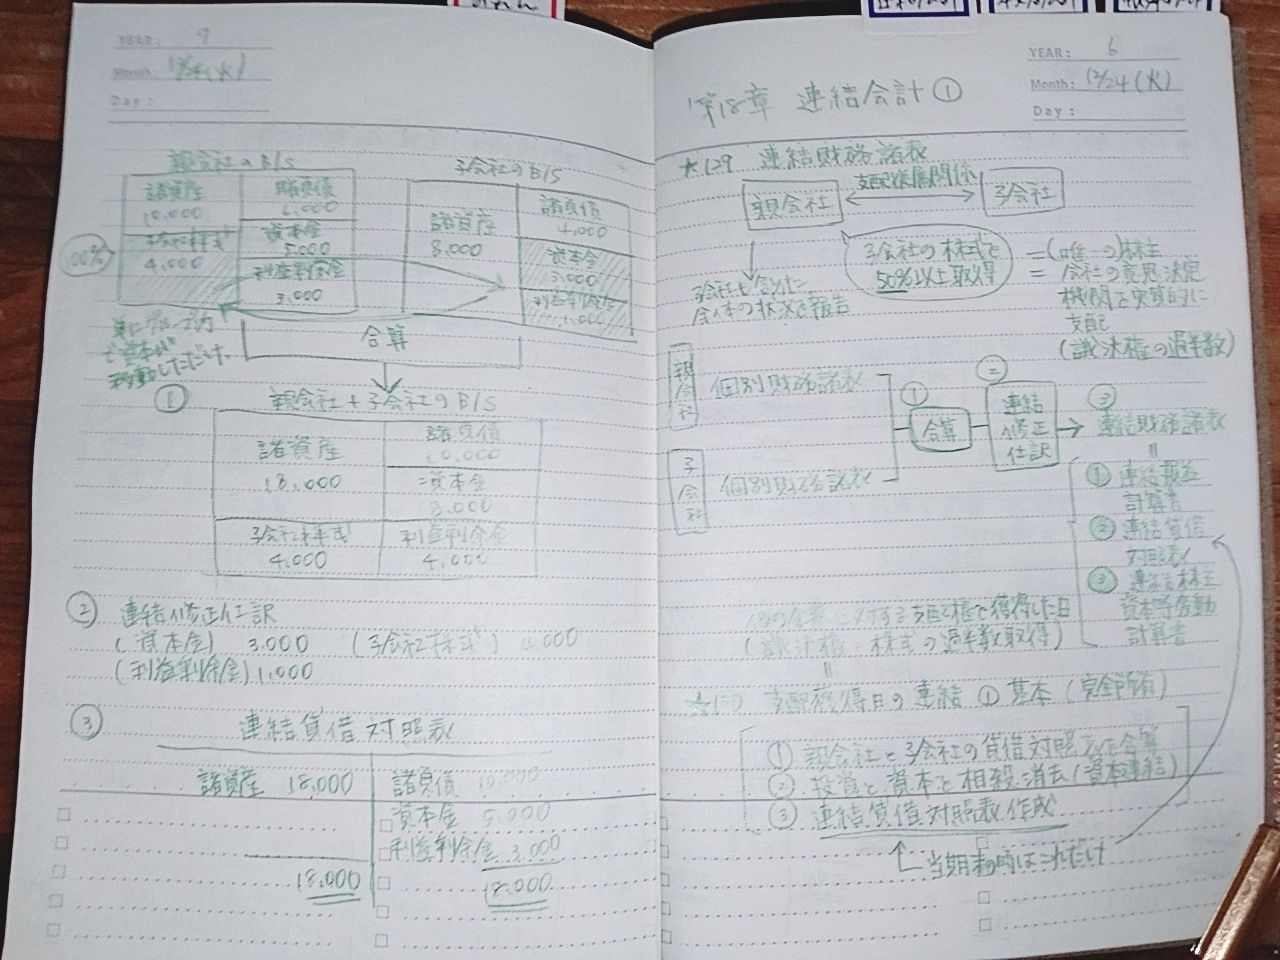 YEAR: 9
Month: 12/24(火)
Day:
親会社のB/S
子会社のB/S
諸資産
10,000
諸負債
6,000
子会社株式
4,000
資本金
5,000
利益剰余金
3,000
100%
諸資産
8,000
諸負債
4,000
資本金
3,000
利益剰余金
1,000
単にグループ内
で資本が
移動しただけ。
合算
① 親会社+子会社のB/S
諸資産
18,000
諸負債
10,000
資本金
8,000
子会社株式
4,000
利益剰余金
4,000
② 連結修正仕訳
(資本金) 3,000 (子会社株式) 4,000
(利益剰余金) 1,000
③ 連結貸借対照表
諸資産 18,000 諸負債 10,000
資本金 5,000
利益剰余金 3,000
18,000 18,000
YEAR: 6
Month: 12/24(火)
Day:
第18章 連結会計①
★129 連結財務諸表
親会社
支配従属関係
子会社
子会社の株式を
50%以上取得
=(唯一の)株主
= 会社の意思決定
機関を実質的に
支配
(議決権の過半数)
子会社も含めた
全体の状況を報告
親会社
個別財務諸表
子会社
個別財務諸表
①
合算
②
連結
修正
仕訳
③
連結財務諸表
=
① 連結損益
計算書
② 連結貸借
対照表
③ 連結株主
資本等変動
計算書
他の企業に対する支配権を獲得した日
(議決権=株式の過半数取得)
=
★130 支配獲得日の連結 ① 基本(完全所有)
① 親会社と子会社の貸借対照表を合算
② 投資と資本を相殺消去(資本連結)
③ 連結貸借対照表作成
当期末の時はこれだけ